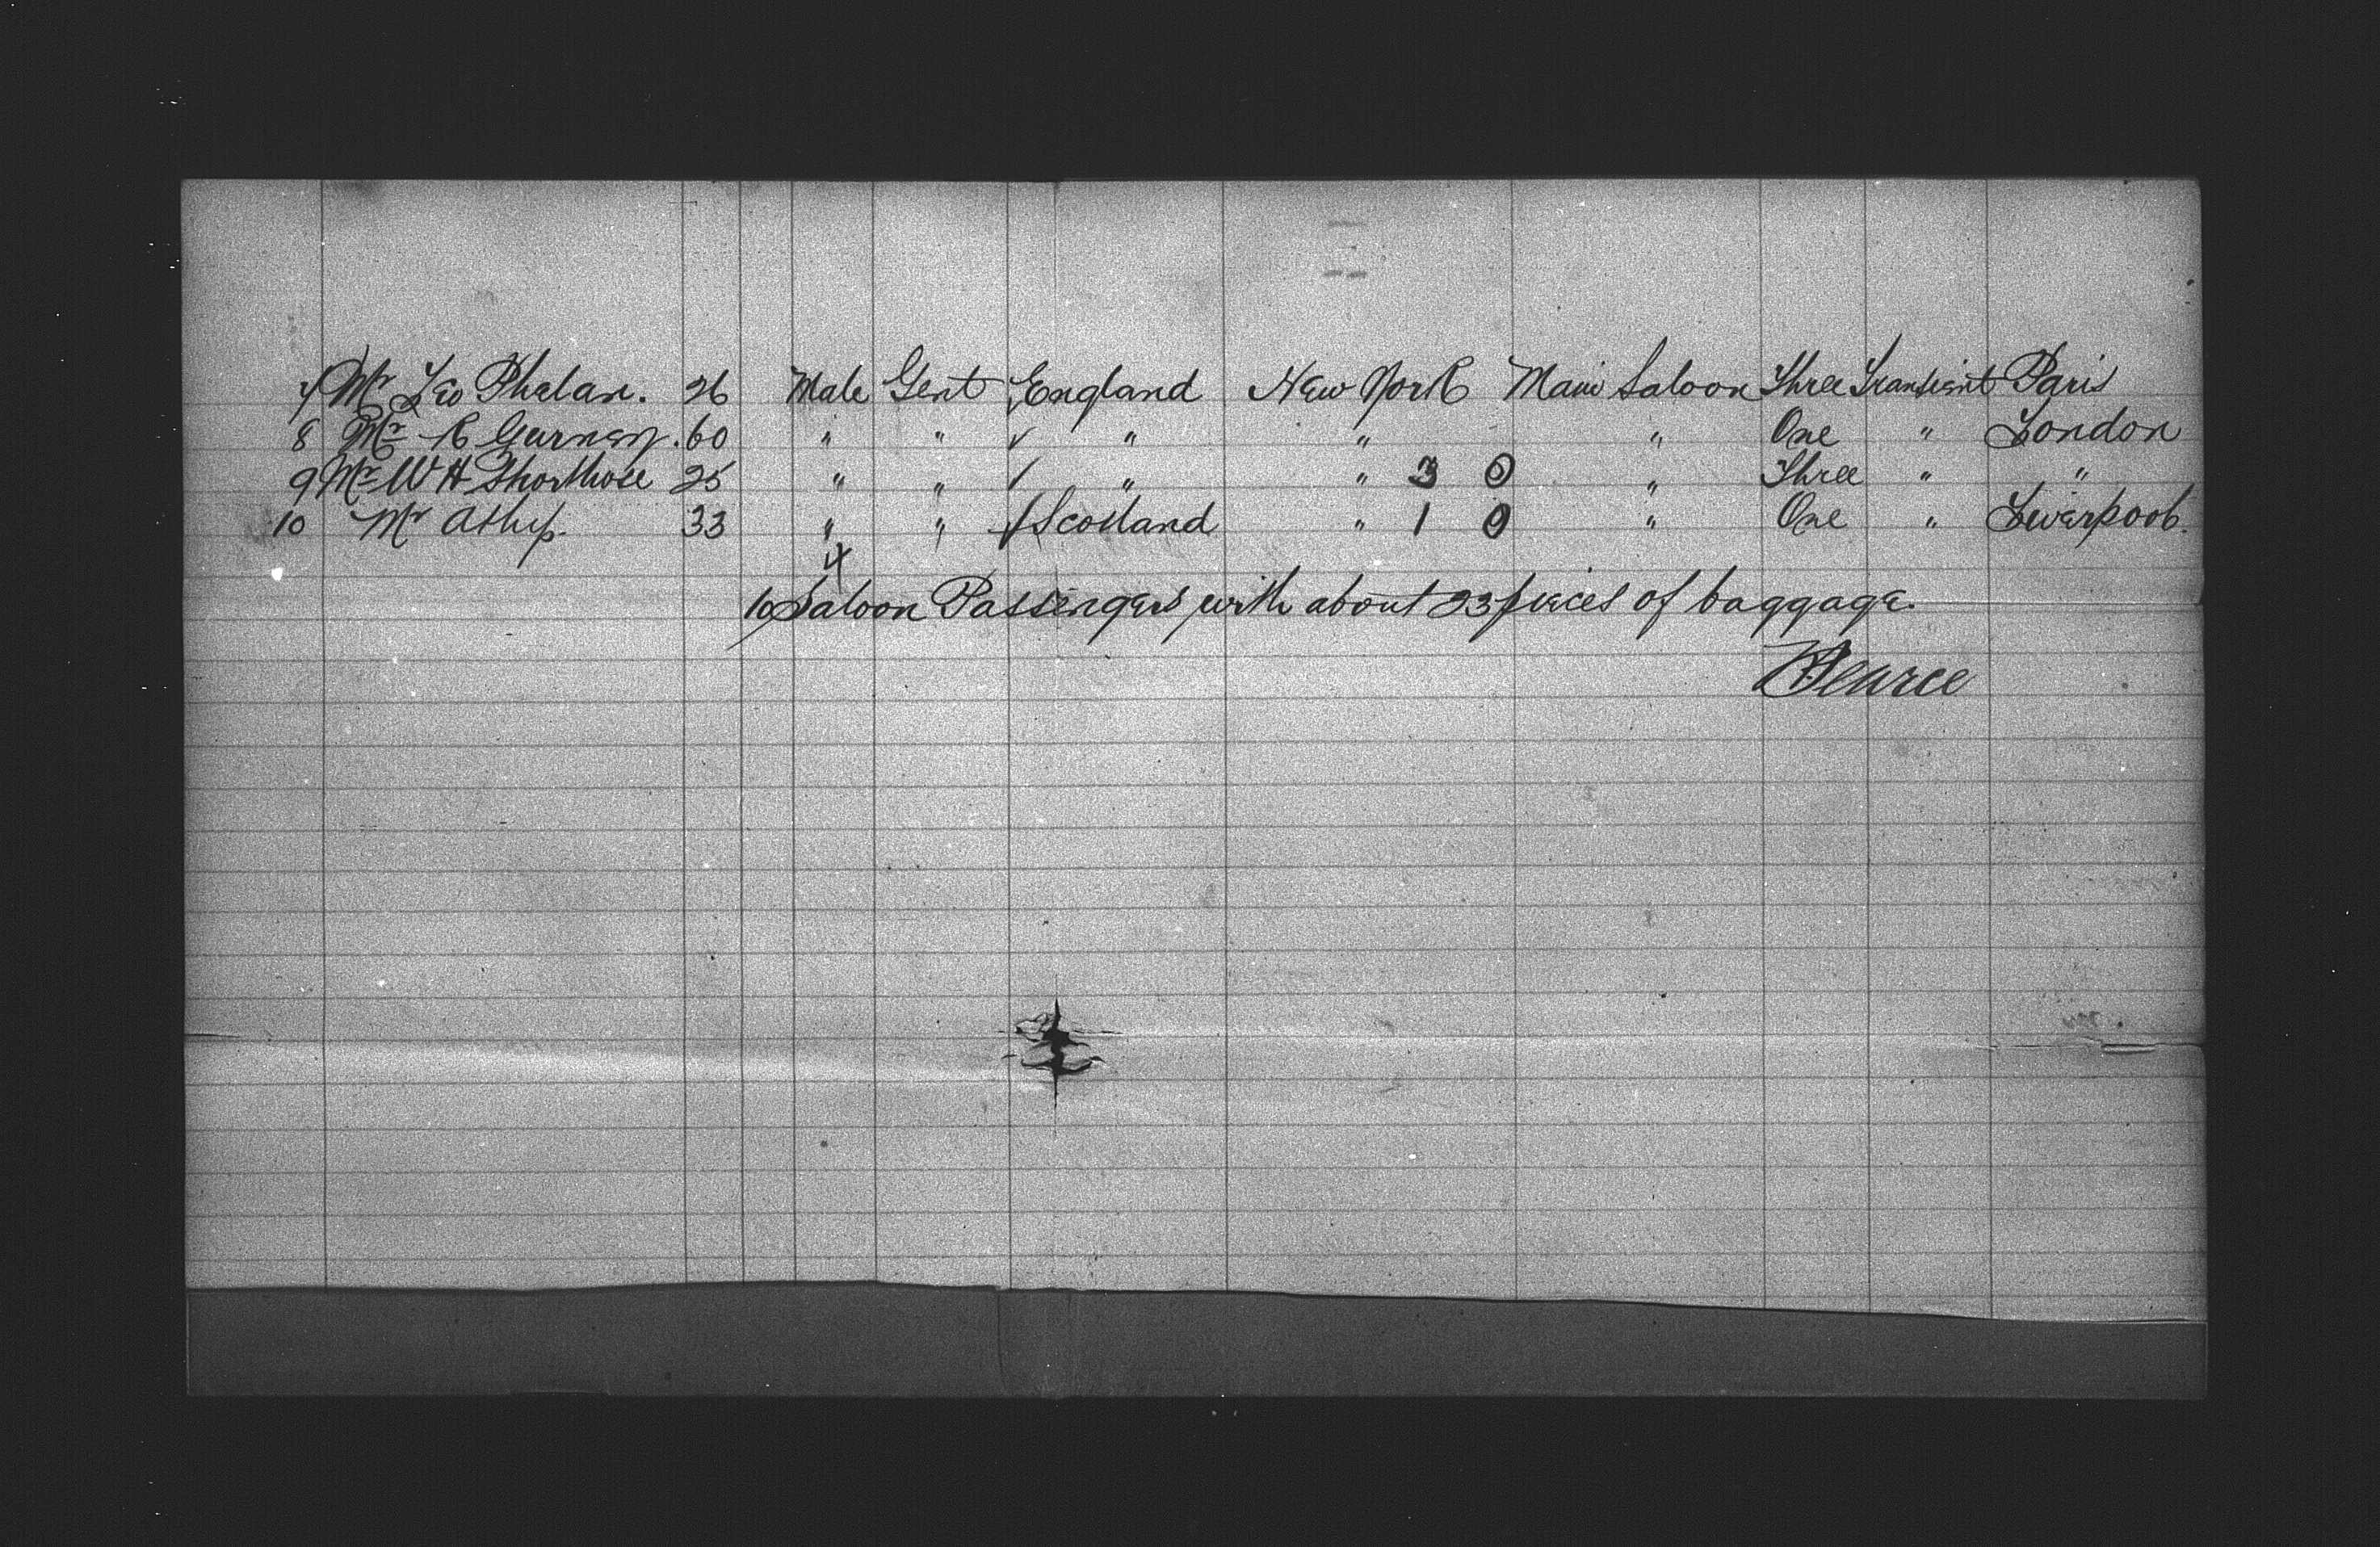 7 Mr Leo Phelan. 26 Male Gent England New York Main Saloon Three Transient Paris
8 Mr R Gurney. 60 " " ✓ " " " One " London
9 Mr W H Shorthose 25 " " ✓ " " 3 0 " Three " "
10 Mr 33 " " ✓ Scotland " 1 0 " One " Liverpool.
4
10 Saloon Passengers with about 23 pieces of baggage.
Pearce